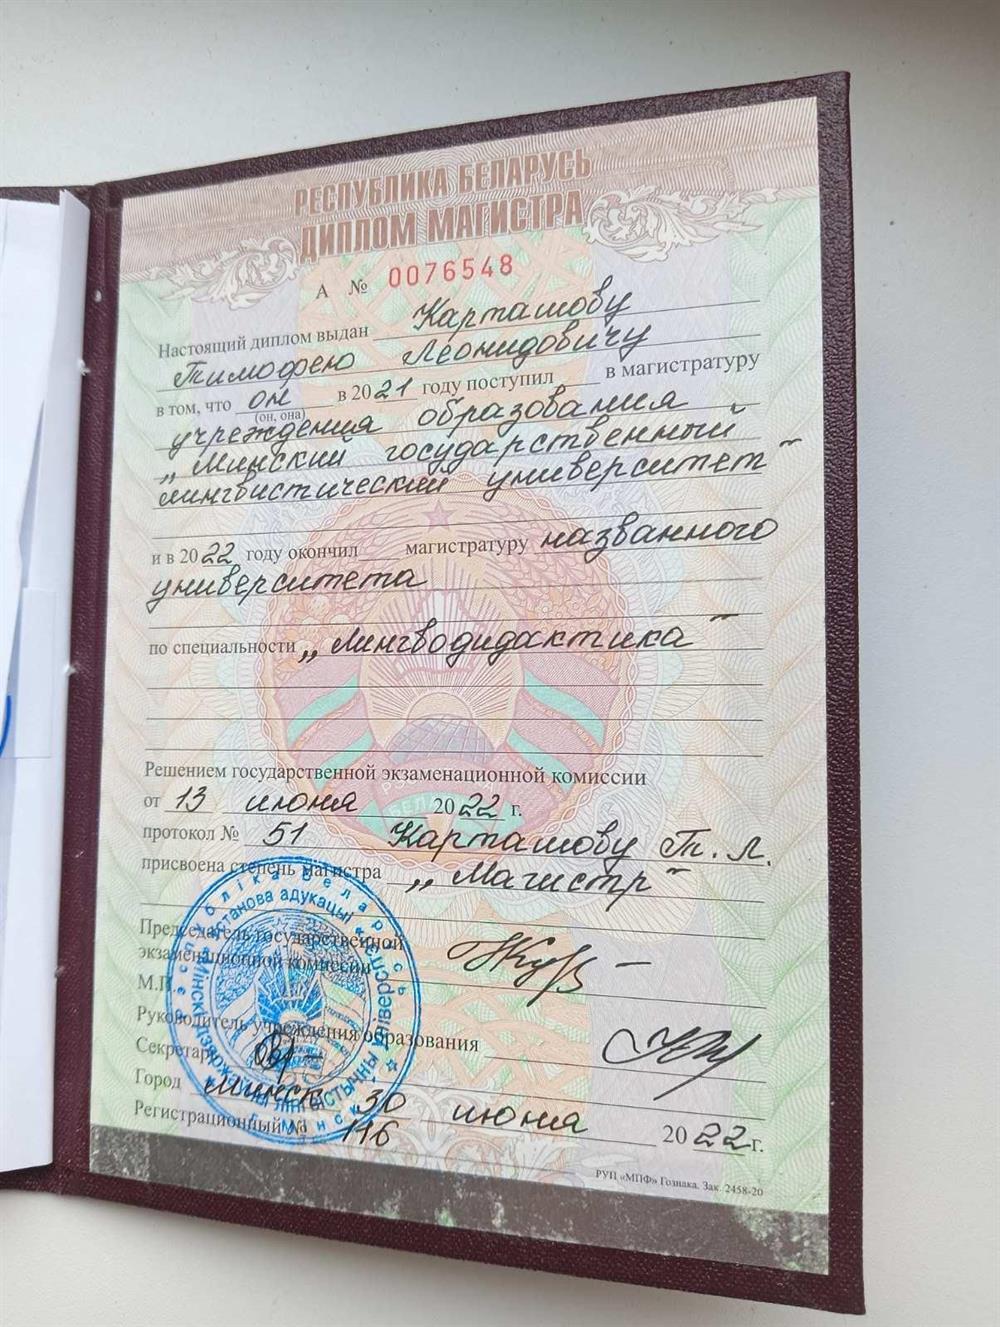 РЕСПУБЛИКА БЕЛАРУСЬ
ДИПЛОМ МАГИСТРА
А № 0076548
Настоящий диплом выдан Карташову
Тимофею Леонидовичу
в том, что он в 2021 году поступил в магистратуру
(он, она)
учреждения образования
„Минский государственный
лингвистический университет“
и в 2022 году окончил магистратуру названного
университета
по специальности „Лингводидактика“
Решением государственной экзаменационной комиссии
от 13 июня 2022 г.
протокол № 51 Карташову Т. Л.
присвоена степень магистра „Магистр“
Председатель государственной
экзаменационной комиссии
М.П.
Руководитель учреждения образования
Секретарь
Город Минск 30 июня 2022 г.
Регистрационный № 116
РУП «МПФ» Гознака. Зак. 2458-20
Рэспубліка Беларусь
Установа адукацыі
Мінскі дзяржаўны лінгвістычны ўніверсітэт
г. Мінск